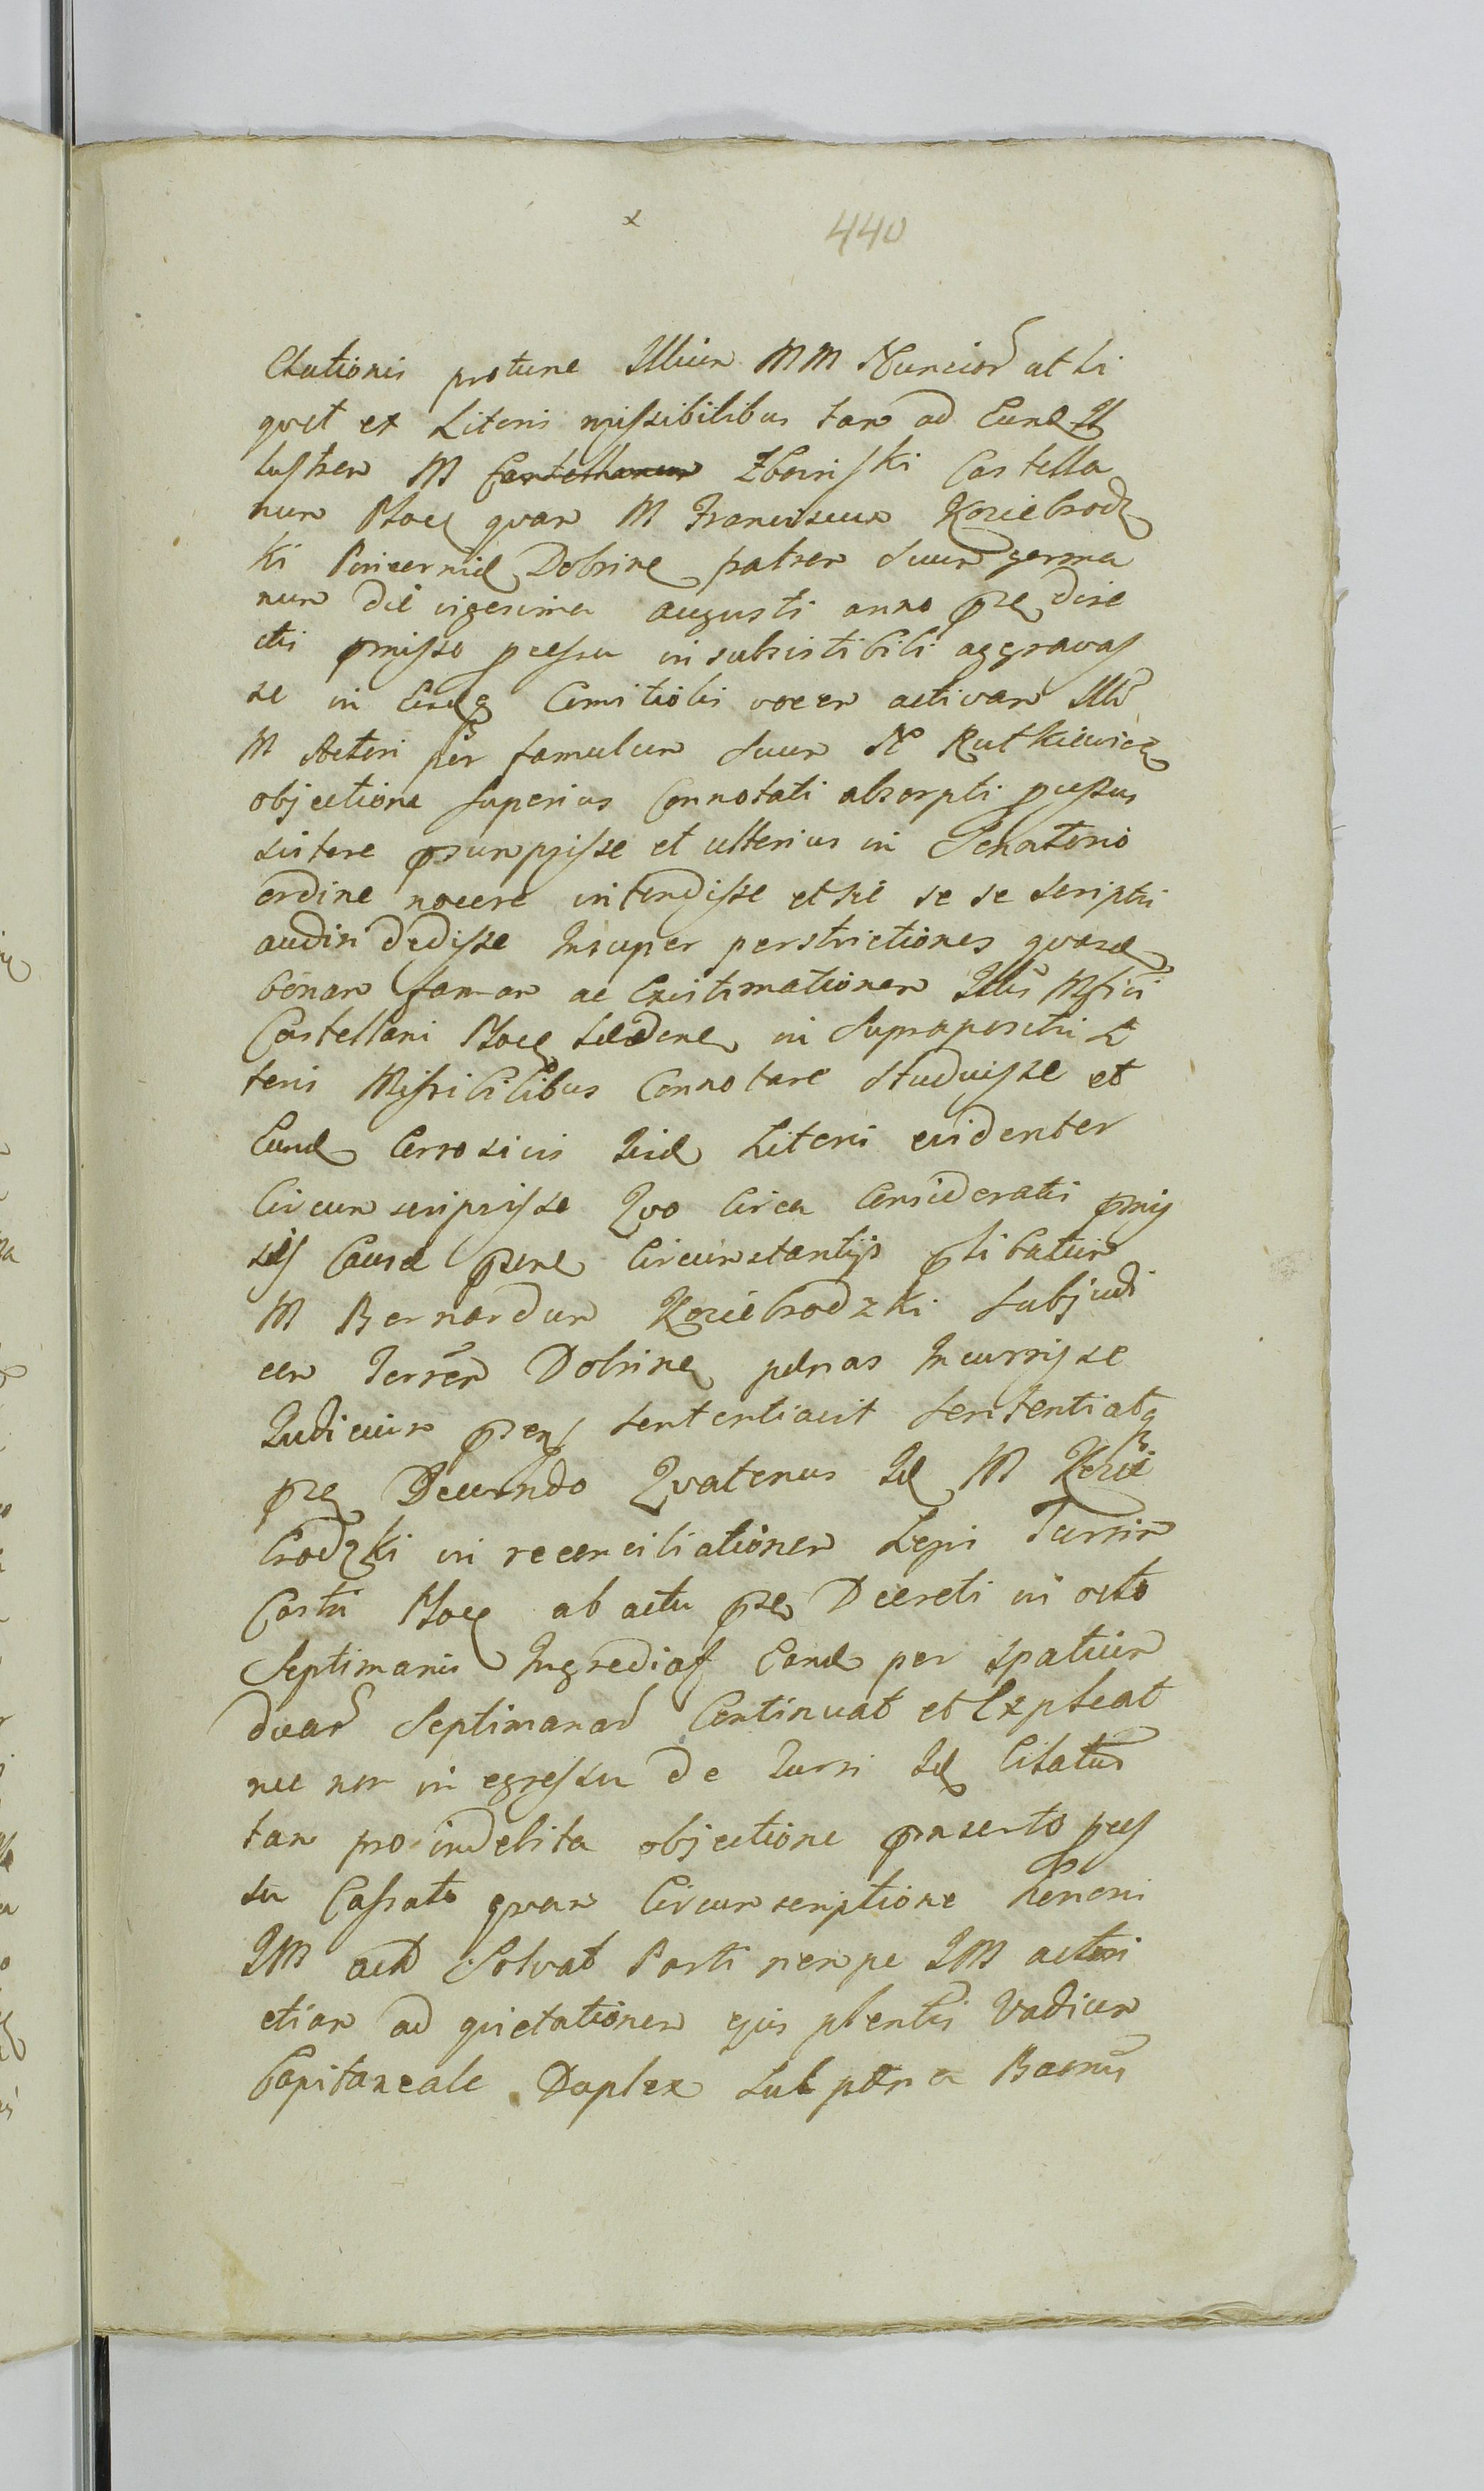 x 440
Ctationis protunc Illium MM Nuncior ut li
qvet ex Literis missibilibus tam ad Eund Il
lustrem M Castellanum Zboinski Castella
num Ploc qvam M Franciscum Koziebrodz
ki Pincernid Dobrinen fratrem suum germa
num die vigesima augusti anno prae dire
ctis pmisso pcessu in subsistibili aggravas
se in Eisdq Comitiolis vocem activam Illu
M Actori per famulum suum N Rutkiewicz
objectione superius Connotati absorpti pcessus
sistere psumpsisse et ulterius in Senatorio
ordine nocere intendisse et sic se se scriptis
audiri dedisse Insuper perstrictiones qvasd
bonam famam ac Existimationem Illis Mfici
Castellani Ploc laeden in Suprapositis Li
teris Missibilibus Connotare studuisse et
Eund Corrosivis iisd Literis evidenter
Circumscripsisse Qvo Circa Consideratis pmis
sis Causae psen Circumstantijs plibatum
M Bernardum Koziebrodzki Subjudi
cem Terrem Dobrinen paenas Incurrisse
Judicium psens sententiavit sententiatq
prae Decernendo Qvatenus Id M Kozie
brodzki in reconciliationem Legis Turrim
Castri Ploc ab actu pse Decreti in octo
Septimanis Ingrediat Eand per spatium
duar Septimanar Continuat et Expleat
nec non in egressu de Turri Id Citatus
tam pro indebita objectione pinserto pces
su Cassato qvam Circumscriptione honoris
IM act Solvat Parti nempe IM actori
etiam ad qvietationem ejus plentis Vadium
Capitaneale Duplex sub paena Bannis